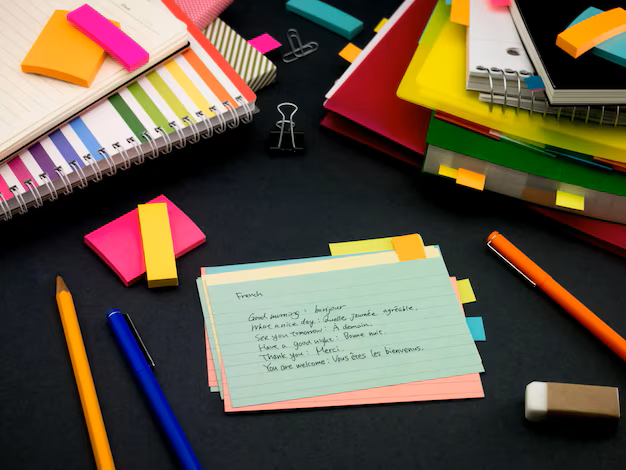 French
Good morning : bonjour
What a nice day : Quelle journée agréable.
See you tomorrow : À demain.
Have a good night : Bonne nuit.
Thank you : Merci.
You are welcome : Vous êtes les bienvenus.